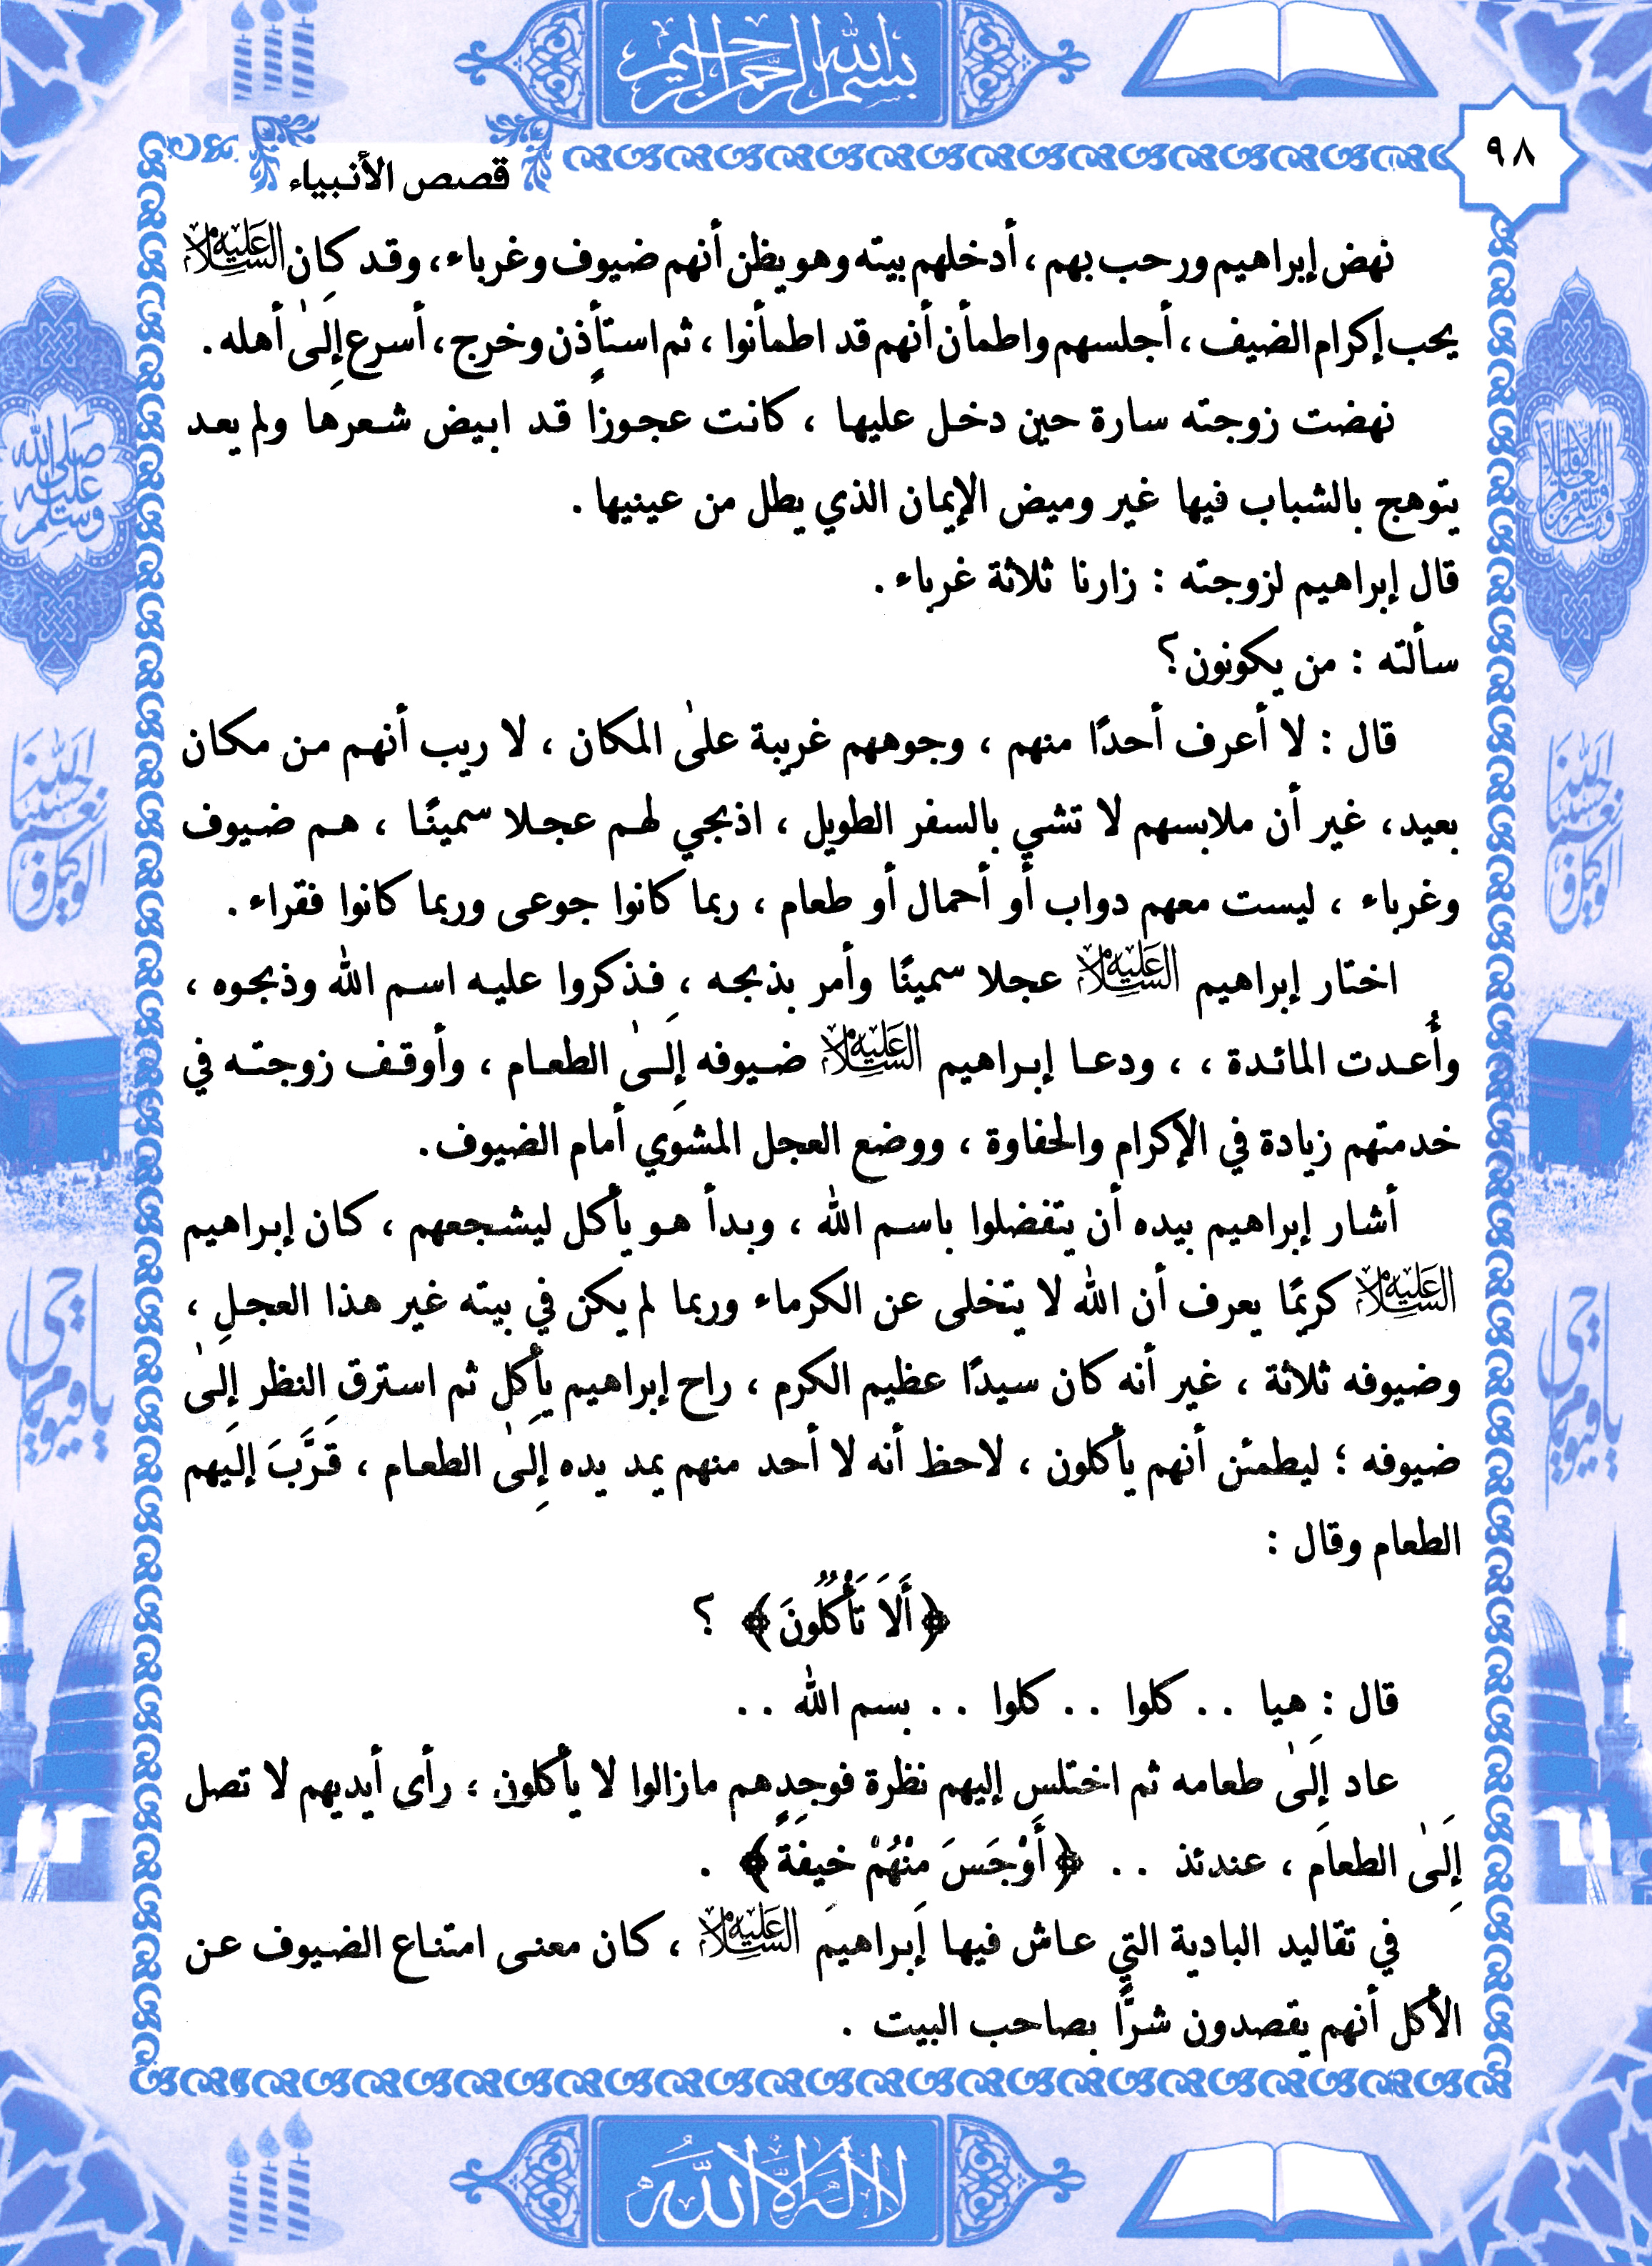 بسم الله الرحمن الرحيم
٩٨
قصص الأنبياء
نهض إبراهيم ورحب بهم ، أدخلهم بيته وهو يظن أنهم ضيوف وغرباء ، وقد كان عليه السلام
يحب إكرام الضيف ، أجلسهم واطمأن أنهم قد اطمأنوا ، ثم استأذن وخرج ، أسرع إلى أهله .
نهضت زوجته سارة حين دخل عليها ، كانت عجوزا قد ابيض شعرها ولم يعد
يتوهج بالشباب فيها غير وميض الإيمان الذي يطل من عينيها .
قال إبراهيم لزوجته : زارنا ثلاثة غرباء .
سألته : من يكونون ؟
قال : لا أعرف أحدًا منهم ، وجوههم غريبة على المكان ، لا ريب أنهم من مكان
بعيد ، غير أن ملابسهم لا تشي بالسفر الطويل ، اذبحي لهم عجلا سمينًا ، هم ضيوف
وغرباء ، ليست معهم دواب أو أحمال أو طعام ، ربما كانوا جوعى وربما كانوا فقراء .
اختار إبراهيم عليه السلام عجلا سمينًا وأمر بذبحه ، فذكروا عليه اسم الله وذبحوه ،
وأُعدت المائدة ، ، ودعا إبراهيم عليه السلام ضيوفه إلى الطعام ، وأوقف زوجته في
خدمتهم زيادة في الإكرام والحفاوة ، ووضع العجل المشوي أمام الضيوف .
أشار إبراهيم بيده أن يتفضلوا باسم الله ، وبدأ هو يأكل ليشجعهم ، كان إبراهيم
عليه السلام كريمًا يعرف أن الله لا يتخلى عن الكرماء وربما لم يكن في بيته غير هذا العجل ،
وضيوفه ثلاثة ، غير أنه كان سيدًا عظيم الكرم ، راح إبراهيم يأكل ثم استرق النظر إلى
ضيوفه ؛ ليطمئن أنهم يأكلون ، لاحظ أنه لا أحد منهم يمد يده إلى الطعام ، قَرَّبَ إليهم
الطعام وقال :
﴿أَلَا تَأْكُلُونَ﴾ ؟
قال : هيا . . كلوا . . كلوا . . بسم الله . .
عاد إلى طعامه ثم اختلس إليهم نظرة فوجدهم مازالوا لا يأكلون ؛ رأى أيديهم لا تصل
إلى الطعام ، عندئذ . . ﴿أَوْجَسَ مِنْهُمْ خِيفَةً﴾ .
في تقاليد البادية التي عاش فيها إبراهيم عليه السلام ، كان معنى امتناع الضيوف عن
الأكل أنهم يقصدون شرًّا بصاحب البيت .
لا إله إلا الله